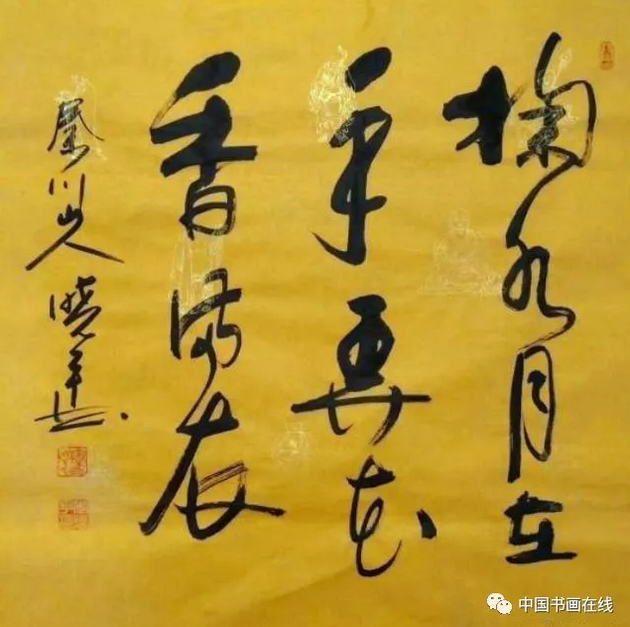 掬水月在
手弄花
香满衣
秦川山人晓平
中国书画在线